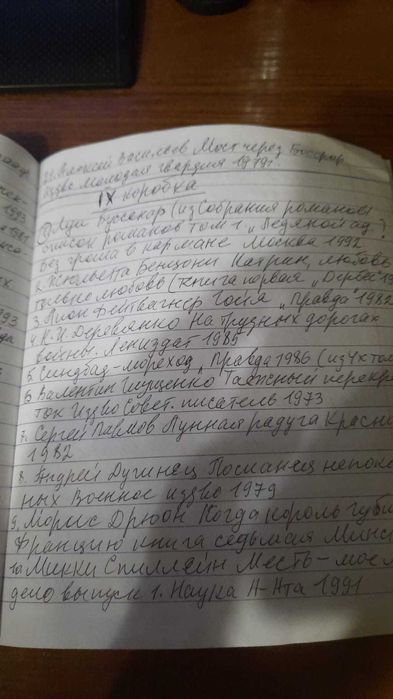 21. Алексей Васильев Мост через Босфор
Изд-во Молодая гвардия 1979г
IX коробка
1 Луи Буссенар (из Собрания романов)
список романов том 1. „Ледяной ад"?
Без гроша в кармане Москва 1992
2. Жюльетта Бенцони Катрин, любовь
только любовь (книга первая „Дербе" 19
3. Лион Фейхтвагнер Гойя „Правда" 1982
4. К.И Деревянко На трудных дорогах
войны. Лениздат 1985
5. Синдбад-мореход „Правда 1986 (из 4х том
6 Валентин Гнущенко Таежный перекрё
ток Изд-во Совет. писатель 1973
7. Сергей Павлов Лунная радуга Красно
1982
8. Андрей Дугинец Посланец непоко
ных Военное изд-во 1979
9. Морис Дрюон Когда король губи
Францию книга седьмая Минс
10 Микки Спиллейн Месть - мое л
дело выпуск 1. Наука А-Ата 1991
1993
1981
993